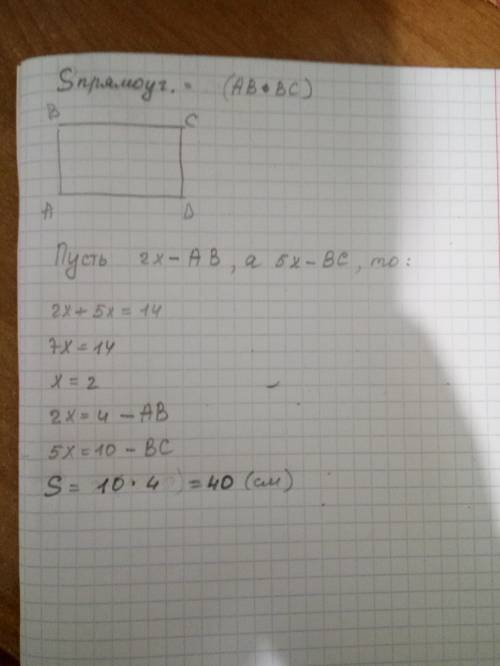 Sпрямоуг. = (AB•BC)
B C
A D
Пусть 2x-AB, а 5x-BC, то:
2x+5x=14
7x=14
x=2
2x=4-AB
5x=10-BC
S= 10·4 =40 (см)